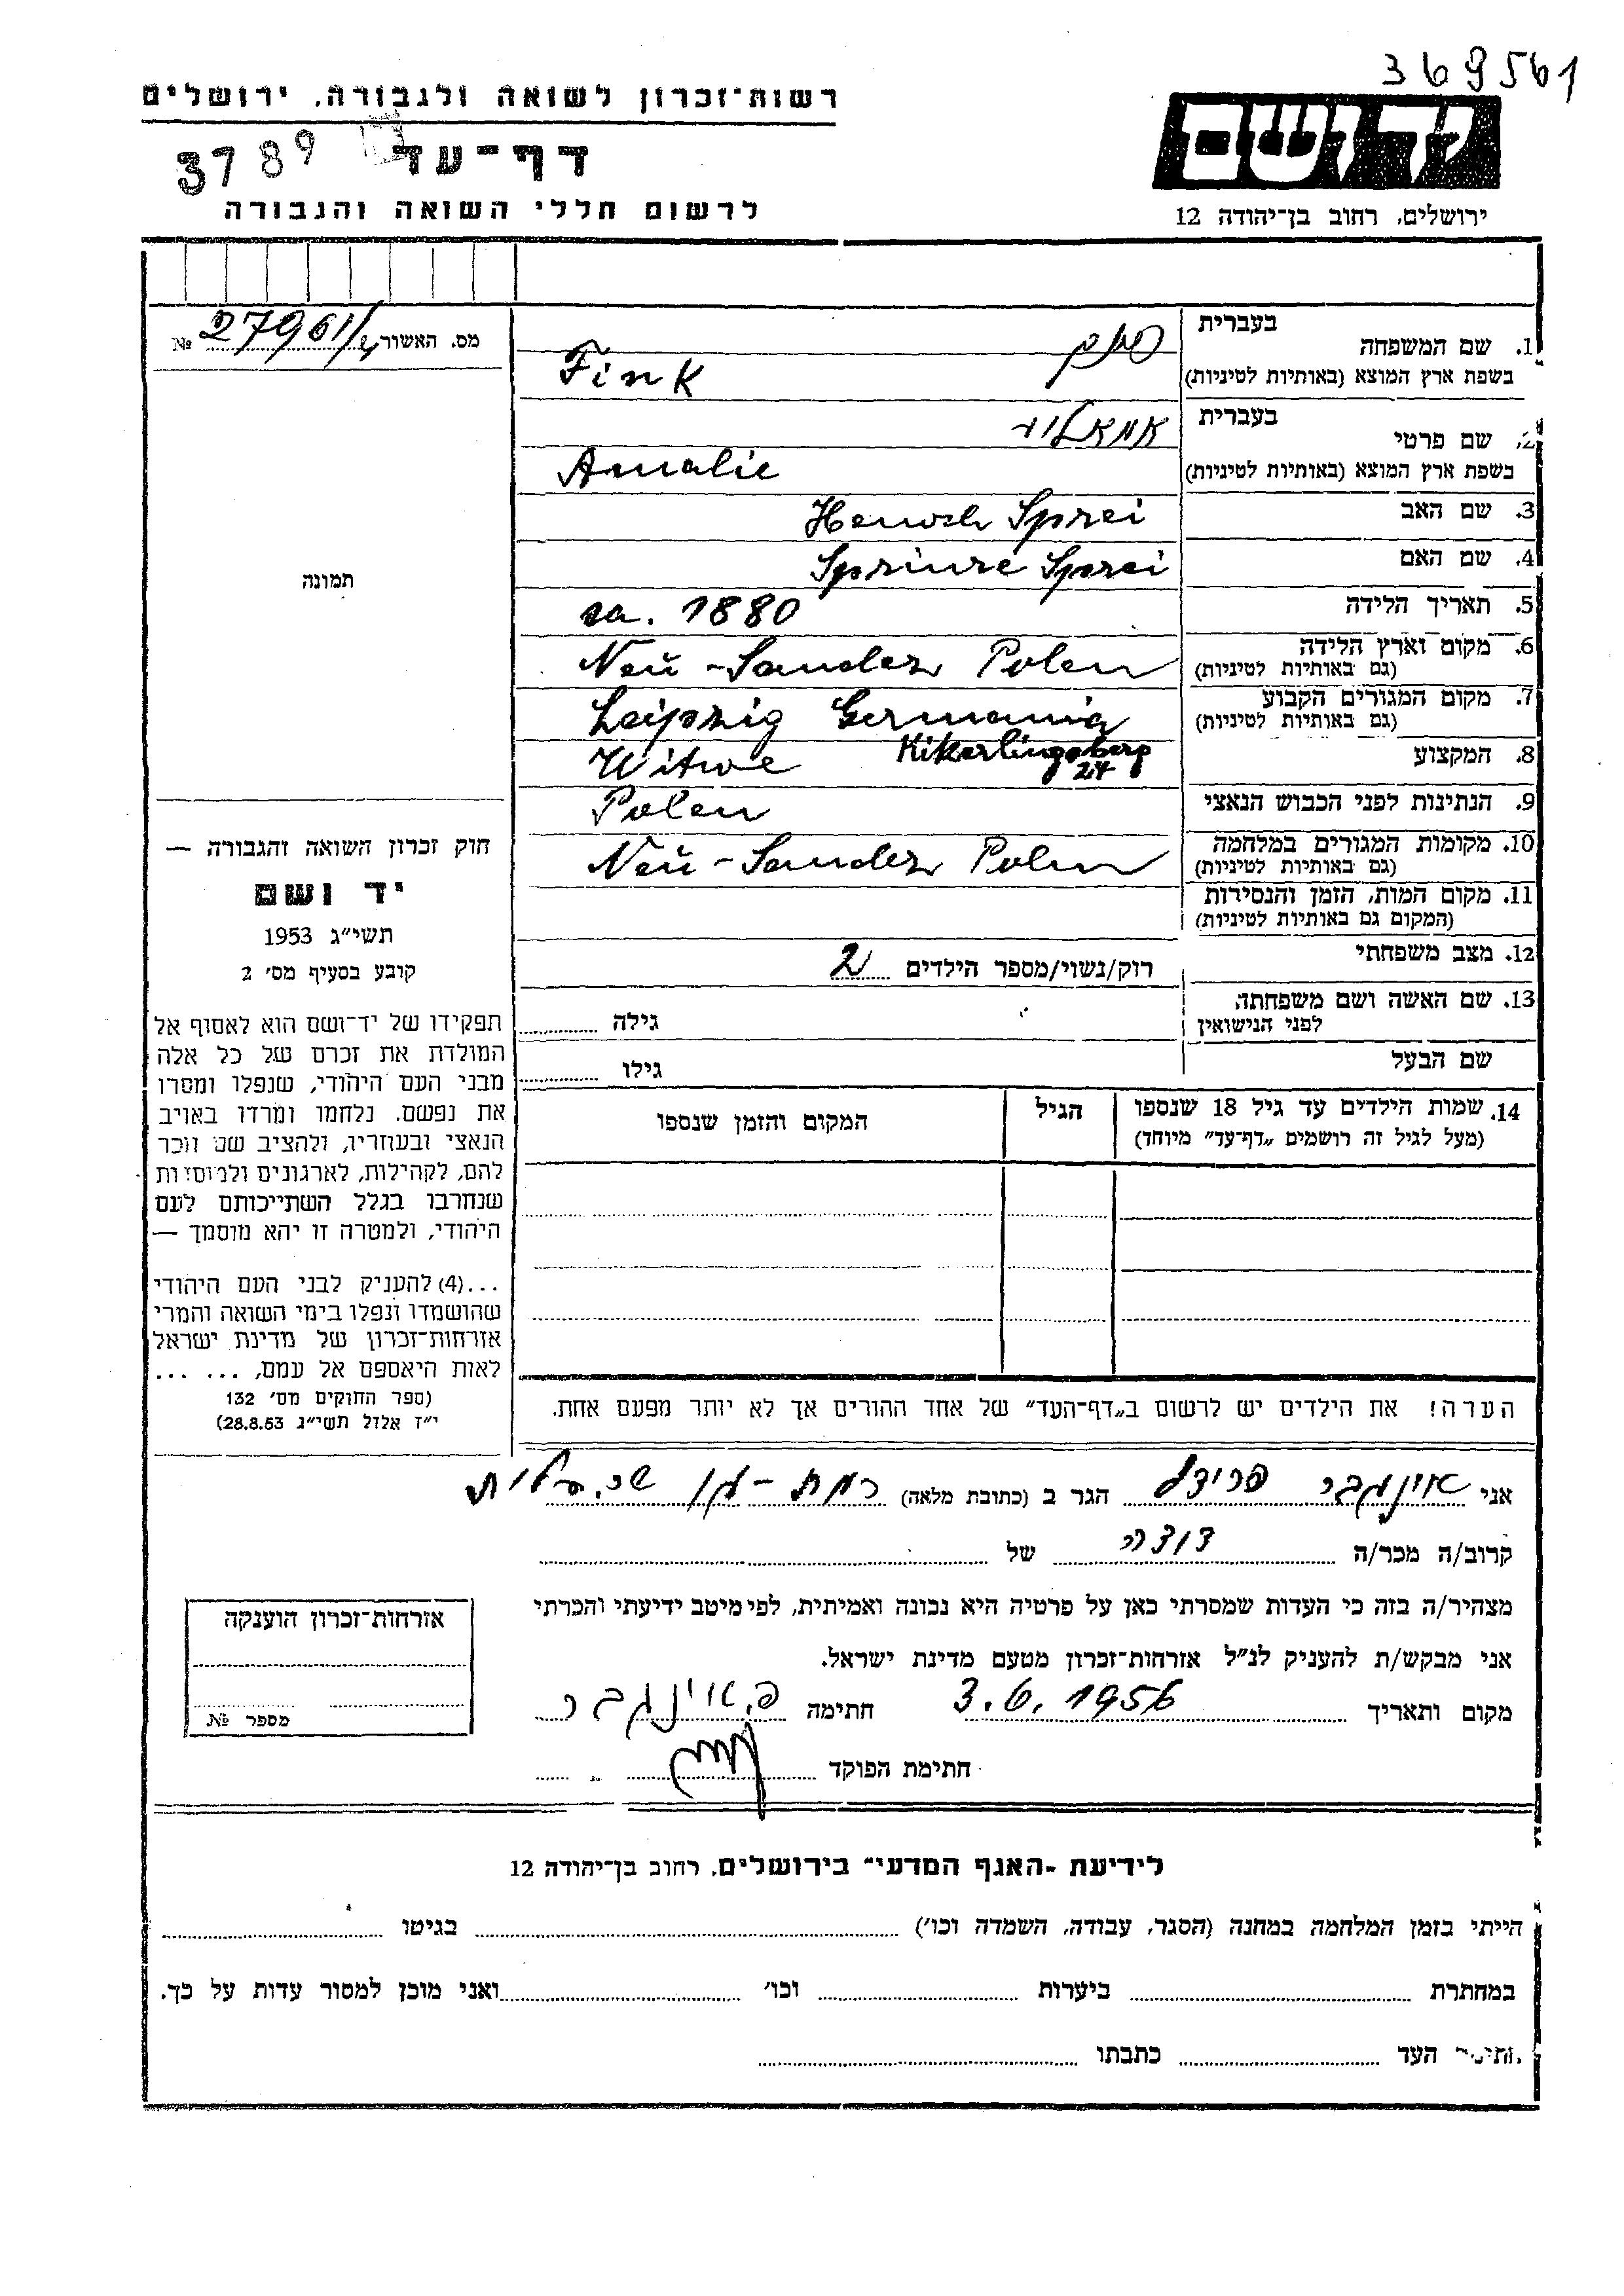 369561
רשות־זכרון לשואה ולגבורה, ירושלים
יד ושם
3789
דף־עד
ירושלים, רחוב בן־יהודה 12
לרשום חללי השואה והגבורה
מס. האשור № 27961/
1. שם המשפחה
בעברית פינק
בשפת ארץ המוצא (באותיות לטיניות) Fink
2. שם פרטי
בעברית
בשפת ארץ המוצא (באותיות לטיניות) Amalie
3. שם האב Henoch Sprei
4. שם האם Sprinze Sprei
תמונה
5. תאריך הלידה ca. 1880
6. מקום וארץ הלידה
(גם באותיות לטיניות) Neu-Sandez Polen
7. מקום המגורים הקבוע
(גם באותיות לטיניות) Leipzig Germania
Kikerlingsberg 24
8. המקצוע Witwe
9. הנתינות לפני הכבוש הנאצי Polen
10. מקומות המגורים במלחמה
(גם באותיות לטיניות) Neu-Sandez Polen
11. מקום המות, הזמן והנסירות
(המקום גם באותיות לטיניות)
12. מצב משפחתי
רוק/נשוי/מספר הילדים 2
13. שם האשה ושם משפחתה
לפני הנישואין
גילה
שם הבעל
גילו
14. שמות הילדים עד גיל 18 שנספו
(מעל לגיל זה רושמים „דף־עד” מיוחד)
הגיל
המקום והזמן שנספו
חוק זכרון השואה והגבורה —
יד ושם
תשי״ג 1953
קובע בסעיף מס׳ 2
תפקידו של יד־ושם הוא לאסוף אל
המולדת את זכרם של כל אלה
מבני העם היהודי, שנפלו ומסרו
את נפשם. נלחמו ומרדו באויב
הנאצי ובעוזריו, ולהציב שם וזכר
להם, לקהילות, לארגונים ולמוסדות
שנחרבו בגלל השתייכותם לעם
היהודי, ולמטרה זו יהא מוסמך —
...(4) להעניק לבני העם היהודי
שהושמדו ונפלו בימי השואה והמרי
אזרחות־זכרון של מדינת ישראל
לאות היאספם אל עמם, ... ...
(ספר החוקים מס׳ 132
י״ז אלול תשי״ג 28.8.53)
הערה! את הילדים יש לרשום ב„דף־העד” של אחד ההורים אך לא יותר מפעם אחת.
אני אוינגבר פרידל הגר ב (כתובת מלאה) רמת-גן
קרוב/ה מכר/ה דודה של
מצהיר/ה בזה כי העדות שמסרתי כאן על פרטיה היא נכונה ואמיתית, לפי מיטב ידיעתי והכרתי
אני מבקש/ת להעניק לנ״ל אזרחות־זכרון מטעם מדינת ישראל.
מקום ותאריך 3.6.1956 חתימה פ. אוינגבר
חתימת הפוקד
אזרחות־זכרון הוענקה
מספר №
לידיעת ״האגף המדעי״ בירושלים, רחוב בן־יהודה 12
הייתי בזמן המלחמה במחנה (הסגר, עבודה, השמדה וכו׳) בגיטו
במחתרת ביערות וכו׳ ואני מוכן למסור עדות על כך.
חתימת העד כתבתו